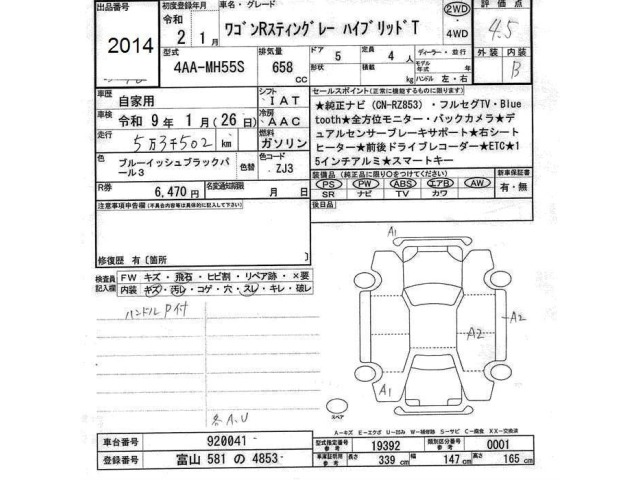 出品番号
2014
初度登録年月
令和
2 1月
車名・グレード
ワゴンRスティングレー ハイブリッドT
2WD
・
4WD
評価点
4.5
型式
4AA-MH55S
排気量
658
CC
ドア
5
形状
定員
4 人
積載
kg
ディーラー・並行
モデル年式 年
ハンドル 左・右
外装
内装
B
車歴
自家用
シフト
IAT
車検 令和 9年 1月(26日)
冷房
AAC
走行
5万3千502 km
燃料
ガソリン
色
ブルーイッシュブラックパール3
色替
色コード
ZJ3
R券
6,470 円
名変通知期限
月 日
セールスポイント(正常に機能するものに限ります)
★純正ナビ(CN-RZ853)・フルセグTV・Blue
tooth★全方位モニター・バックカメラ★デ
ュアルセンサーブレーキサポート★右シート
ヒーター★前後ドライブレコーダー★ETC★1
5インチアルミ★スマートキー
装備品(純正品に限り○をつけてください)
PS PW ABS エアB AW
SR ナビ TV カワ
新車保証書
有・無
注意事項申告欄(不具合内容等は具体的に記入して下さい)
後日品
修復歴 有〔箇所 〕
検査員記入欄
FW キズ・飛石・ヒビ割・リペア跡・×要
内装 キズ・汚レ・コゲ・穴・スレ・キレ・破レ
ハンドルP付
各A、U
A1
A2
A2
A1
スペア
A-キズ E-エクボ U-凹み W-補修跡 S-サビ C-腐食 XX-交換済
車台番号
920041
登録番号
富山 581 の 4853
型式指定番号
参考
19392
類別区分番号
参考
0001
車両証明用
参考
長さ 339 cm
幅 147 cm
高さ 165 cm